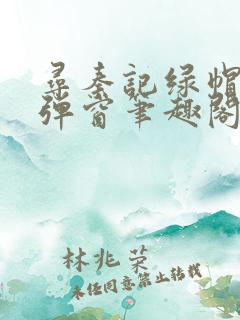 寻秦记绿帽
弹窗笔趣阁
林兆荣
未经同意禁止转载